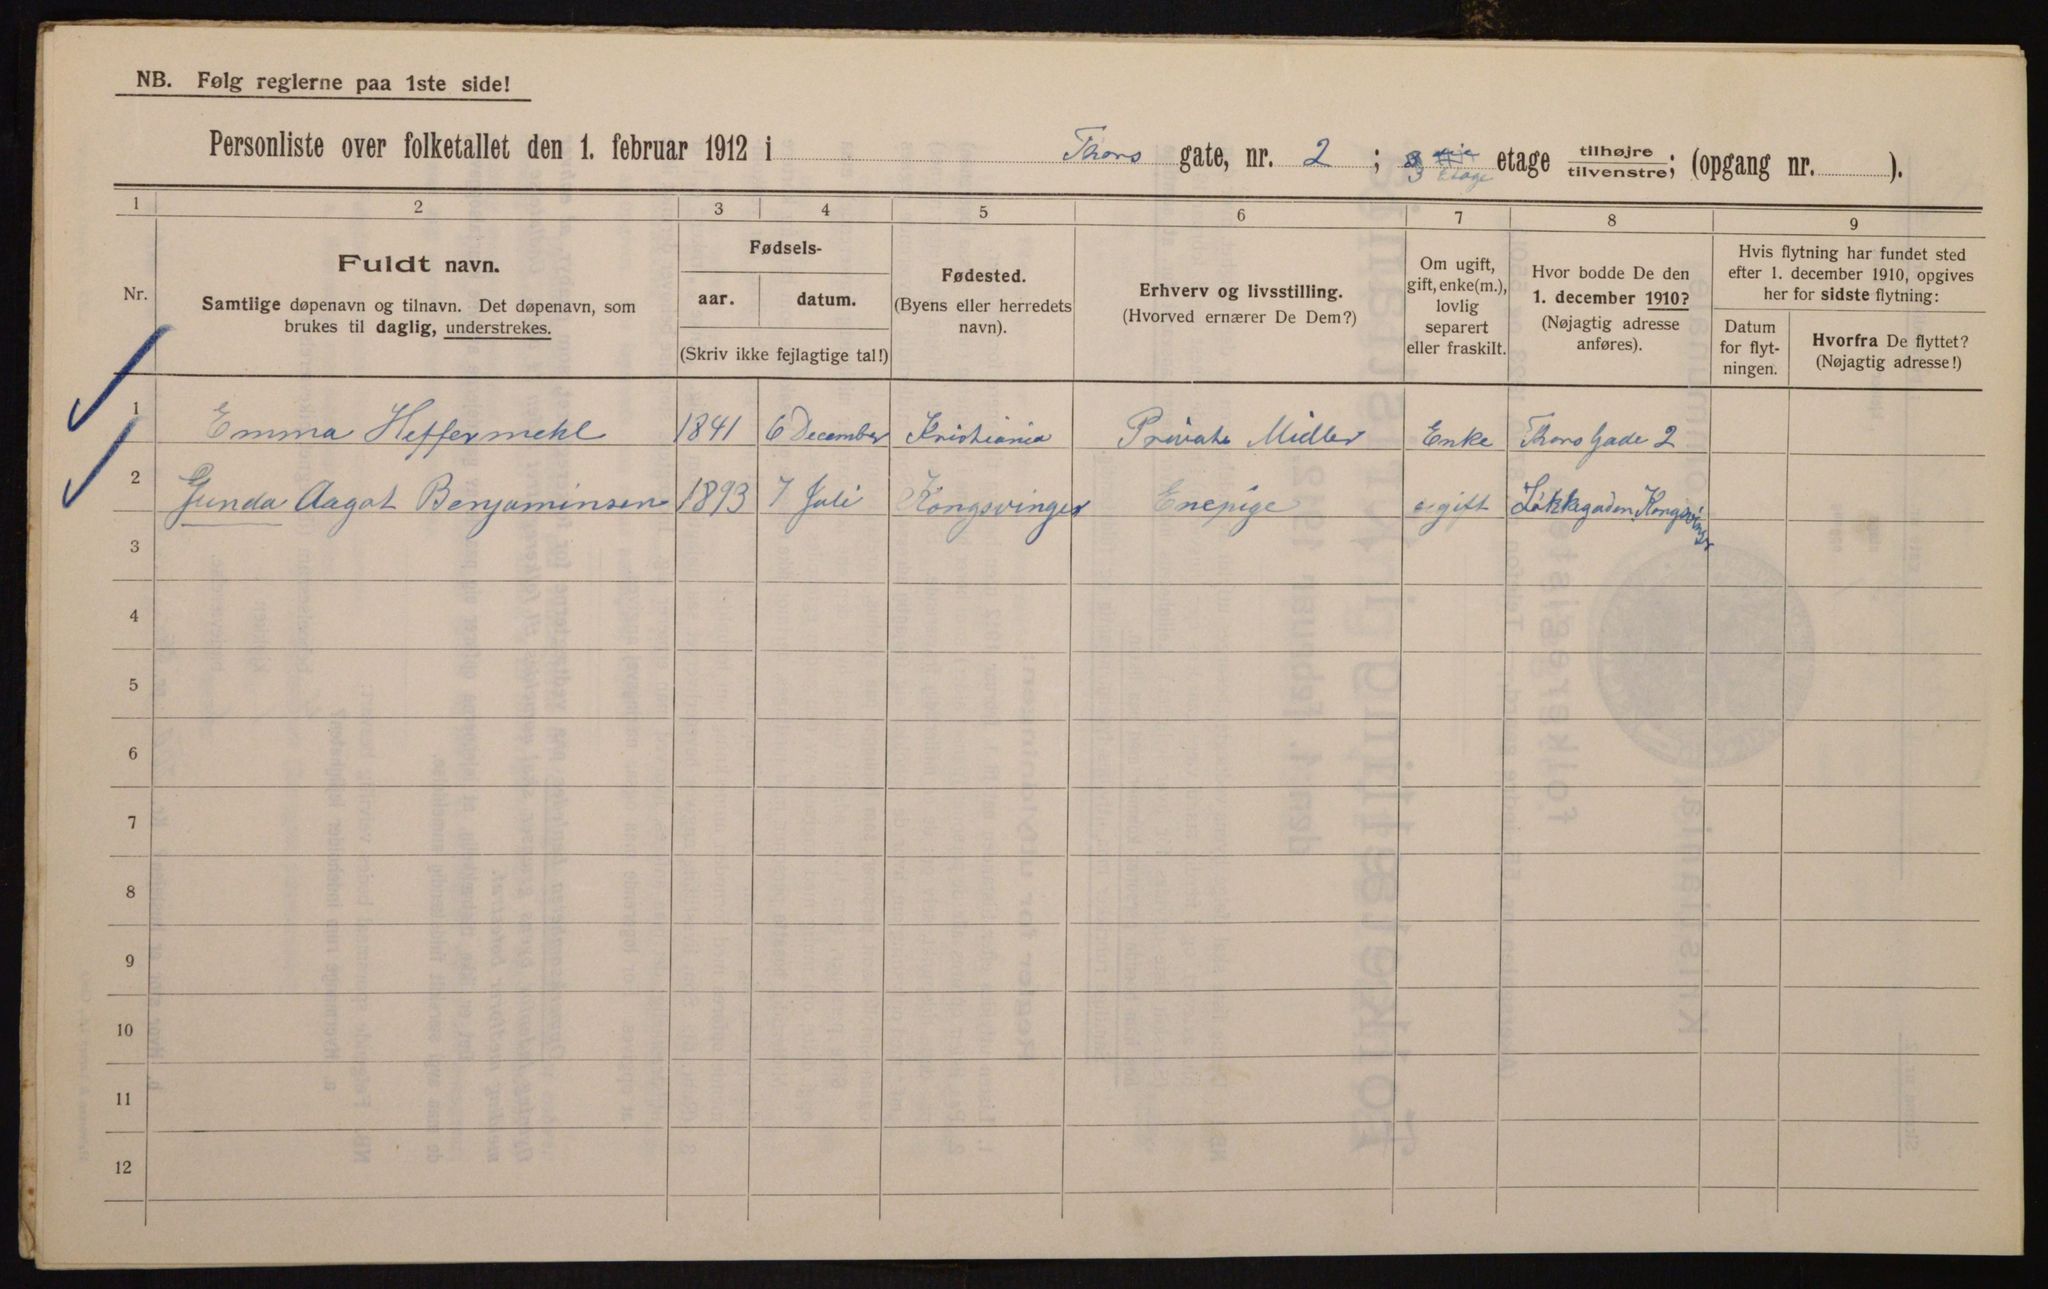 NB. Følg reglerne paa 1ste side!
Personliste over folketallet den 1. februar 1912 i Thors gate, nr. 2 ; 3 Etage etage tilhøjre tilvenstre; (opgang nr. ).
1 2 3 4 5 6 7 8 9
Nr.
Fuldt navn.
Samtlige døpenavn og tilnavn. Det døpenavn, som
brukes til daglig, understrekes.
Fødsels-
aar. datum.
(Skriv ikke fejlagtige tal!)
Fødested.
(Byens eller herredets
navn).
Erhverv og livsstilling.
(Hvorved ernærer De Dem?)
Om ugift,
gift, enke(m.),
lovlig
separert
eller fraskilt.
Hvor bodde De den
1. december 1910?
(Nøjagtig adresse
anføres).
Hvis flytning har fundet sted
efter 1. december 1910, opgives
her for sidste flytning:
Datum
for flyt-
ningen.
Hvorfra De flyttet?
(Nøjagtig adresse!)
1 Emma Heffermehl 1841 6 December Kristiania Private Midler Enke Thors Gade 2
2 Gunda Aagot Benjaminsen 1893 7 Juli Kongsvinger Enepige ugift Løkkegaden, Kongsvinger
3
4
5
6
7
8
9
10
11
12